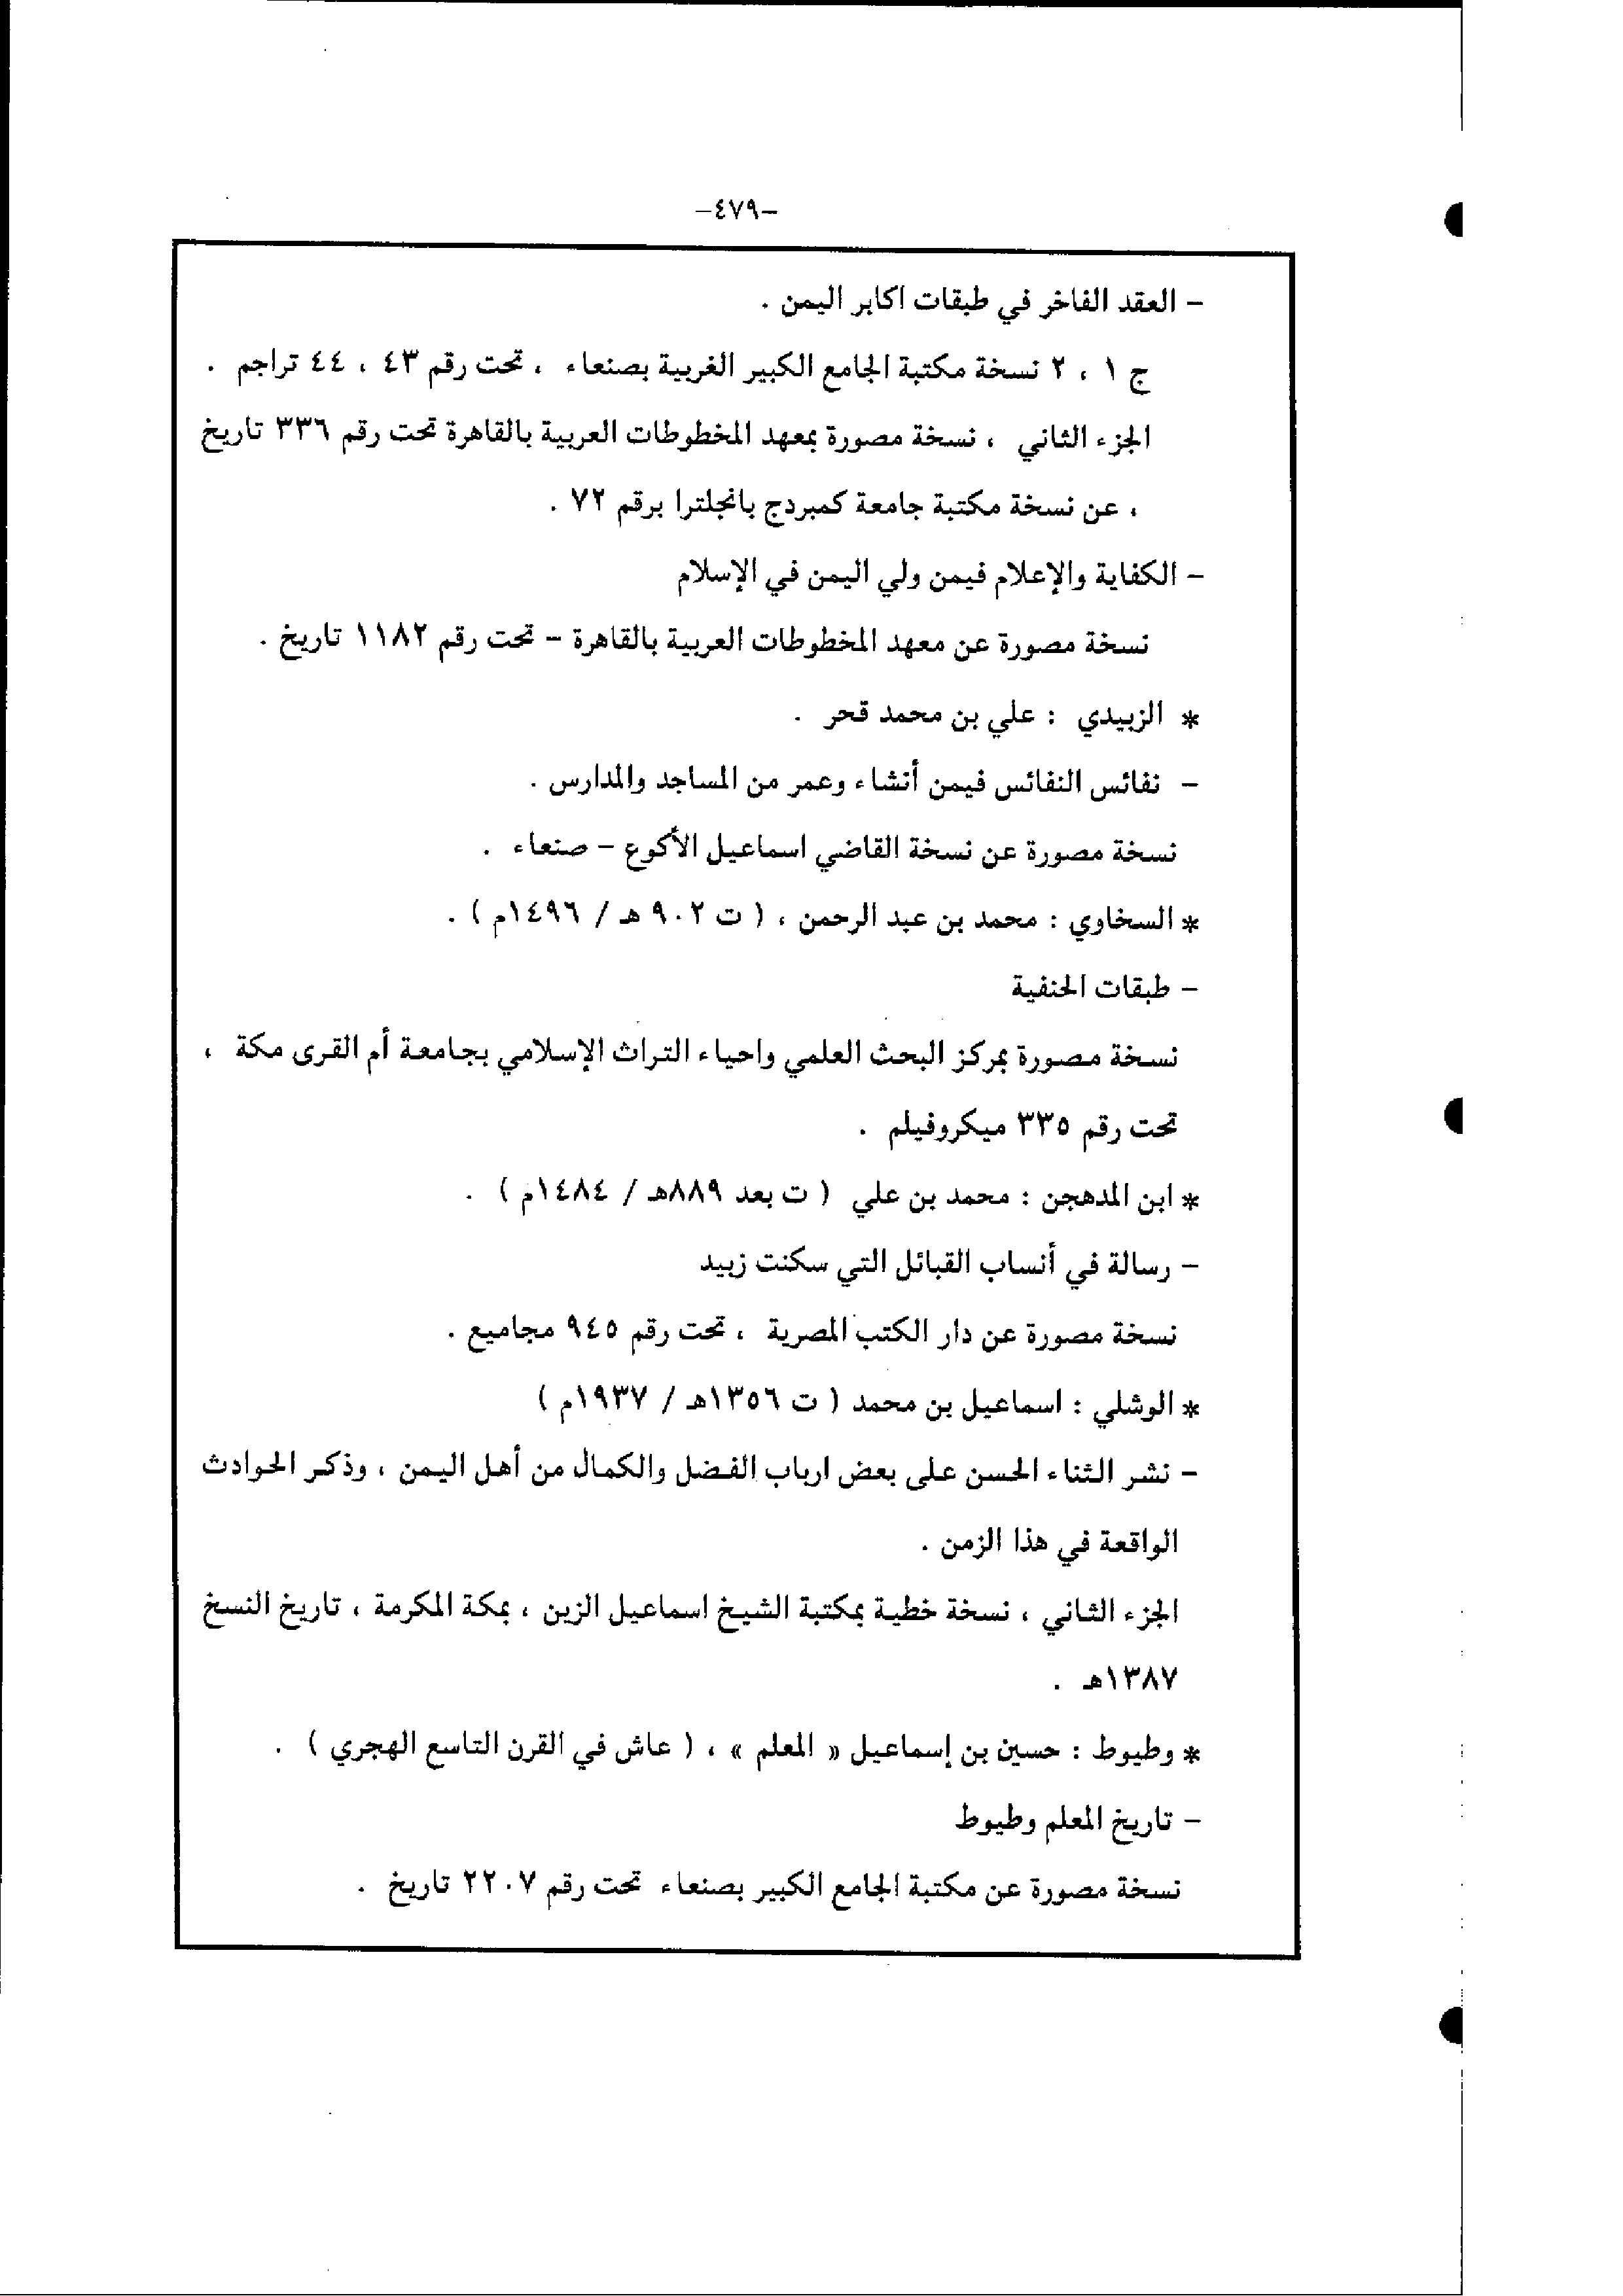 -٤٧٩-
- العقد الفاخر في طبقات اكابر اليمن .
ج ١ ، ٢ نسخة مكتبة الجامع الكبير الغربية بصنعاء ، تحت رقم ٤٣ ، ٤٤ تراجم .
الجزء الثاني ، نسخة مصورة بمعهد المخطوطات العربية بالقاهرة تحت رقم ٣٣٦ تاريخ
، عن نسخة مكتبة جامعة كمبردج بانجلترا برقم ٧٢ .
- الكفاية والإعلام فيمن ولي اليمن في الإسلام
نسخة مصورة عن معهد المخطوطات العربية بالقاهرة - تحت رقم ١١٨٢ تاريخ .
* الزبيدي : علي بن محمد قحر .
- نفائس النفائس فيمن أنشاء وعمر من المساجد والمدارس .
نسخة مصورة عن نسخة القاضي اسماعيل الأكوع - صنعاء .
* السخاوي : محمد بن عبد الرحمن ، ( ت ٩٠٢ هـ / ١٤٩٦م ) .
- طبقات الحنفية
نسخة مصورة بمركز البحث العلمي واحياء التراث الإسلامي بجامعة أم القرى مكة ،
تحت رقم ٣٣٥ ميكروفيلم .
* ابن المدهجن : محمد بن علي ( ت بعد ٨٨٩هـ / ١٤٨٤م ) .
- رسالة في أنساب القبائل التي سكنت زبيد
نسخة مصورة عن دار الكتب المصرية ، تحت رقم ٩٤٥ مجاميع .
* الوشلي : اسماعيل بن محمد ( ت ١٣٥٦هـ / ١٩٣٧م )
- نشر الثناء الحسن على بعض ارباب الفضل والكمال من أهل اليمن ، وذكر الحوادث
الواقعة في هذا الزمن .
الجزء الثاني ، نسخة خطية بمكتبة الشيخ اسماعيل الزين ، بمكة المكرمة ، تاريخ النسخ
١٣٨٧هـ .
* وطيوط : حسين بن إسماعيل « المعلم » ، ( عاش في القرن التاسع الهجري ) .
- تاريخ المعلم وطيوط
نسخة مصورة عن مكتبة الجامع الكبير بصنعاء تحت رقم ٢٢٠٧ تاريخ .